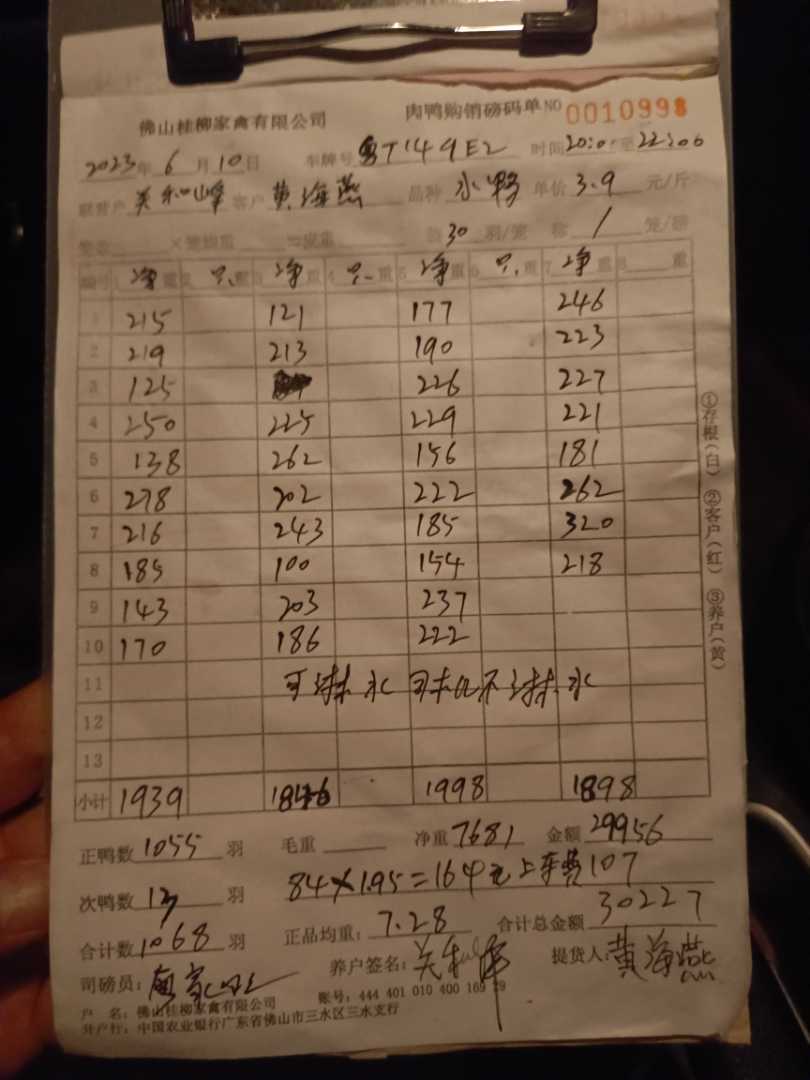 佛山桂柳家禽有限公司 肉鸭购销磅码单 NO 0010998
2023年 6月10日 车牌号 粤T149E2 时间 20:0 至 22:06
联营户 关和峰 客户 黄海燕 品种 水鸭 单价 3.9 元/斤
30 羽/笼 称 1 笼/磅
编号 1 净重 2 重 3 净重 4 重 5 净重 6 重 7 净重 8 重
1 215 121 177 246
2 219 213 190 223
3 125 226 227
4 250 225 229 221
5 138 262 156 181
6 278 202 222 262
7 216 243 185 320
8 185 100 154 218
9 143 203 237
10 170 186 222
11 水 水
12
13
小计 1939 1846 1998 1898
正鸭数 1055 羽 毛重 净重 7681 金额 29956
次鸭数 13 羽 84×1.95=164元 上车费107
合计数 1068 羽 正品均重: 7.28 合计总金额 30227
司磅员: 养户签名: 关和峰 提货人: 黄海燕
户 名: 佛山桂柳家禽有限公司 账号: 444 401 010 400 169 29
开户行: 中国农业银行广东省佛山市三水区三水支行
①存根(白) ②客户(红) ③养户(黄)